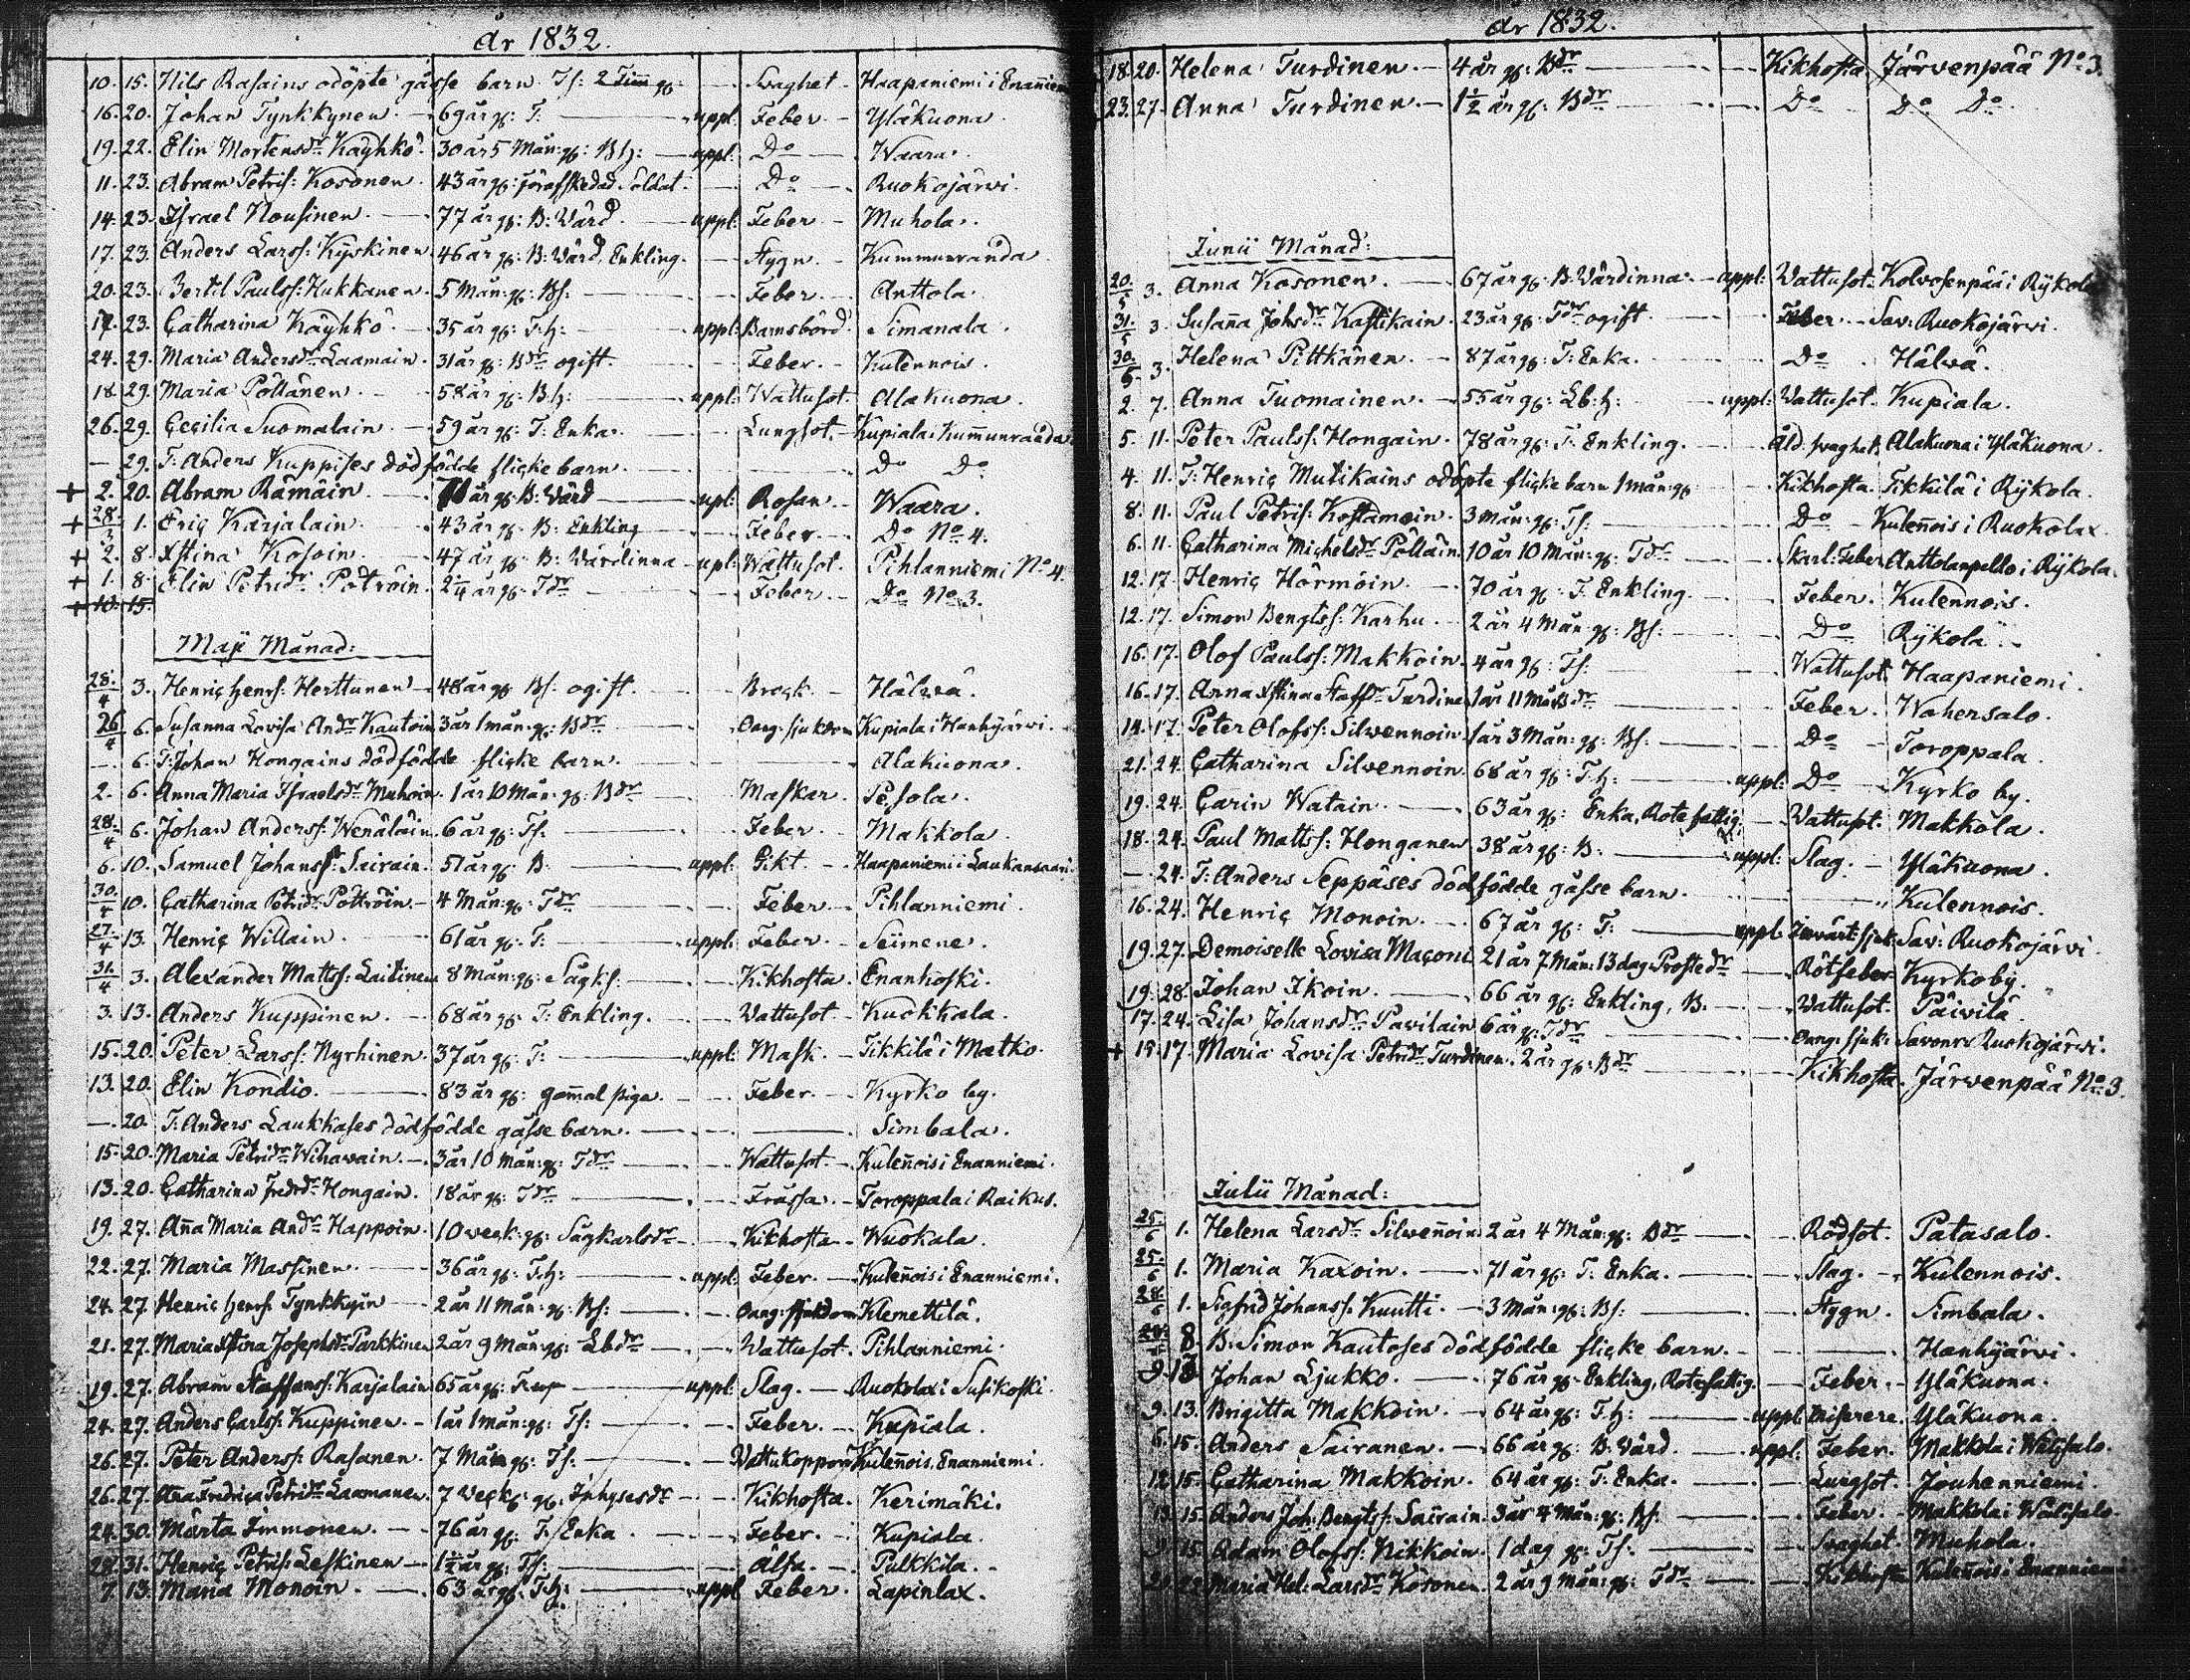 år 1832.
10. 15. Nils Rasains odöpte gåsse barn Ts: 2 Tim̄ gl: Svaghet Haapaniemi i Enanniemi
16. 20. Johan Tynkkynen 69 år gl: T: uppl: Feber Yläkuona
19. 22. Elin Mortensdr Käyhkö 30 år 5 Mån: gl: Bh: uppl: Do Waara
11. 23. Abram Petris: Kosonen 43 år gl: förafskedad Soldat Do Ruokojärwi
14. 23. Israel Nousinen 77 år gl: B: Värd uppl: Feber Muhola
17. 23. Anders Larss: Kyskinen 46 år gl: B: Värd, Enkling Stygn Kummunranda
20. 23. Bertil Paulss: Hukkanen 5 Mån: gl: Bs: Feber Anttola
17. 23. Catharina Käyhkö 35 år gl: Th: uppl: Barnsbörd Simanala
24. 29. Maria Andersdr Laamain 31 år gl: Bdr ogift Feber Kulennois
18. 29. Maria Pöllänen 58 år gl: Bh: uppl: Wattusot Alakuona
26. 29. Cecilia Suomalain 59 år gl: T: Enka Lungsot Kupiala i Kum̄unranda
— 29. T: Anders Kuppises dödfödde flicke barn Do Do
+ 2. 20. Abram Rämäin 70 år gl: B: Värd upl: Rosan Waara
+ 28/3 1. Eric Karjalain 43 år gl: B: Enkling Feber Do No 4.
+ 2. 8. Xstina Kosoin 47 år gl: B: Värdinna upl: Wattusot Pihlanniemi No 4.
+ 1. 8. Elin Petridr Pöträin 2¼ år gl: Tdr Feber Do No 3.
+ 10. 15.
Maji Månad:
28/4 3. Henric Henrs: Herttunen 48 år gl: Bs: ogift Brock Hälwä
26/4 6. Susanna Lovisa Andr Kautoin 3 år 1 mån: gl: Bdr Oang: sjukdom Kupiala i Hanhijärwi
— 6. T: Johan Hongains dödfödde flicke barn Alakuona
2. 6. Anna Maria Israelsdr Muhoin 1 år 10 Mån: gl: Bdr Maskar Pesola
28/4 6. Johan Anderss: Wenäläin 6 år gl: Ts: Feber Makkola
6. 10. Samuel Johanss: Sairain 51 år gl: B: uppl: Gikt Haapaniemi i Laukansaari
30/4 10. Catharina Petridr Pöträin 4 Mån: gl: Tdr Feber Pihlanniemi
27/4 13. Henric Willain 61 år gl: T: uppl: Feber Seimene
31/4 3. Alexander Matts: Laitinen 8 Mån: gl: Sågk:s: Kikhosta Enankoski
3. 13. Anders Kuppinen 68 år gl: T: Enkling Wattusot Kuokkala
15. 20. Peter Larss: Nyrhinen 37 år gl: T: uppl: Mask Tikkilä i Matko
13. 20. Elin Kondio 83 år gl: gam̄al piga Feber Kyrko by.
— 20. T: Anders Laukkases dödfödde gåsse barn Simbala
15. 20. Maria Petridr Wihawain 3 år 10 Mån: gl: Tdr Wattusot Kulen̄ois i Enanniemi
13. 20. Catharina Fredrdr Hongain 18 år gl: Tdr Frassa Toroppala i Raikus.
19. 27. An̄a Maria Andr Happoin 10 veck: gl: Sågkarlsdr Kikhosta Wuokala
22. 27. Maria Massinen 36 år gl: Th: uppl: Feber Kulen̄ois i Enanniemi.
24. 27. Henric Henrs: Tynkkyin 2 år 11 Mån: gl: Bs: Oang: sjukdom Klemettilä
21. 27. Maria Xstina Josephsdr Parkkinen 2 år 9 Mån: gl: Lbdr Wattusot Pihlanniemi
19. 27. Abram Staffanss: Karjalain 65 år gl: uppl: Slag Ruokolax i Susikoski
24. 27. Anders Carlss: Kuppinen 1 år 1 mån: gl: Ts: Feber Kupiala
26. 27. Peter Anderss: Rasanen 7 Mån gl: Ts: Wattukoppor Kulen̄ois Enanniemi
26. 27. Fredrica Petridr Laamanen 7 Veck: gl: Inhysesdr Kikhosta Kerimäki
24. 30. Märta Immonen 76 år gl: T: Enka Feber Kupiala
28. 31. Henric Petris: Leskinen 1½ år gl: Ts: Älta Pulkkila
7 13. Maria Monoin 63 år gl: Th: uppl Feber Lapinlax.
år 1832.
18. 20. Helena Turdinen 4 år gl: Bdr Kikhosta Järvenpää No 3.
23. 27. Anna Turdinen 1½ år gl: Bdr Do Do Do
Junii Månad:
20/5 3. Anna Kosonen 67 år gl: B: Värdinna uppl: Wattusot Kolvosenpää i Rykola
31/5 3. Susan̄a Johsdr Kastikain 23 år gl: Tdr ogift Feber Sav: Ruokojärvi
30/5 3. Helena Pittkänen 87 år gl: T: Enka Do Hälwä
2. 7. Anna Tuomainen 55 år gl: Lb:h: uppl: Wattusot Kupiala
5. 11. Peter Paulss: Hongain 78 år gl: T: Enkling Åld: svaghet Alakuona i Yläkuona
4. 11. T: Henric Mutikains odöpte flicke barn 1 mån: gl: Kikhosta Tikkilä i Rykola
8. 11. Paul Petris: Kostamoin 3 Mån: gl: Ts: Do Kulen̄ois i Ruokolax
6. 11. Catharina Michelsdr Pölläin 10 år 10 Mån: gl: Tdr Skarl: Feber Anttolanpello i Rykola
12. 17. Henric Hörmöin 70 år gl: T: Enkling Feber Kulennois
12. 17. Simon Bengts: Karhu 2 år 4 Mån: gl: Bs: Do Rykola
16. 17. Olof Paulss: Makkoin 4 år gl: Ts: Wattusot Haapaniemi
16. 17. Anna Xstina Staffdr Turdinen 1 år 11 Mån Bdr Feber Wahersalo
14. 17. Peter Olofss: Silwennoin 1 år 3 Mån: gl: Bs: Do Toroppala
21. 24. Catharina Silwennoin 68 år gl: Th: uppl: Do Kyrko by.
19. 24. Carin Watain 63 år gl: Enka, Rotefattig Wattusot Makkola
18. 24. Paul Matts: Honganen 38 år gl: B: uppl: Slag Yläkuona
— 24. T: Anders Seppäses dödfödde gåsse barn Kulennois
16. 24. Henric Monoin 67 år gl: T: uppl Invärt: sjuk: Sav: Ruokojärvi
19. 27. Demoiselle Lovisa Maçoni 21 år 7 Mån: 13 dag. Prostedr Rötfeber Kyrkoby.
19. 28. Johan Ikoin 66 år gl: Enkling, B: Wattusot Päivilä
17. 24. Lisa Johansdr Pavilain 6 år gl: Tdr Oang: sjuk: Savons Ruokojärvi
+ 15. 17. Maria Lovisa Petridr Turdinen 2 år gl: Bdr Kikhosta Järwenpää No 3.
Julii Månad:
25/6 1. Helena Larsdr Silwen̄oin 2 år 4 Mån: gl: Bdr Rödsot Patasalo
25/6 1. Maria Kaxoin 71 år gl: T: Enka Slag Kulennois
28/6 1. Sigfrid Johanss: Kuutti 3 Mån: gl: Bs: Stygn Simbala
8. B: Simon Kautoses dödfödde flicke barn Hanhijärvi
9. 13. Johan Ljukko 76 år gl: Enkling, Rotefattig Feber Yläkuona
9. 13. Brigitta Makkoin 64 år gl: Th: uppl: Miserere Yläkuona
6. 15. Anders Sairanen 66 år gl: B. Värd uppl: Feber Makkola i Wätisalo
12. 15. Catharina Makkoin 64 år gl: T: Enka Lungsot Jouhenniemi
13. 15. Anders Joh: Bengts: Sairain 3 år 4 Mån: gl: Bs: Feber Makkola i Wätisalo
9. 15. Adam Olofss: Nikkoin 1 dag gl: Ts: Svaghet Muhola
22. Maria Hel: Larsdr Kosonen 2 år 9 Mån: gl: Tdr Kikhosta Kulen̄ois i Enanniemi